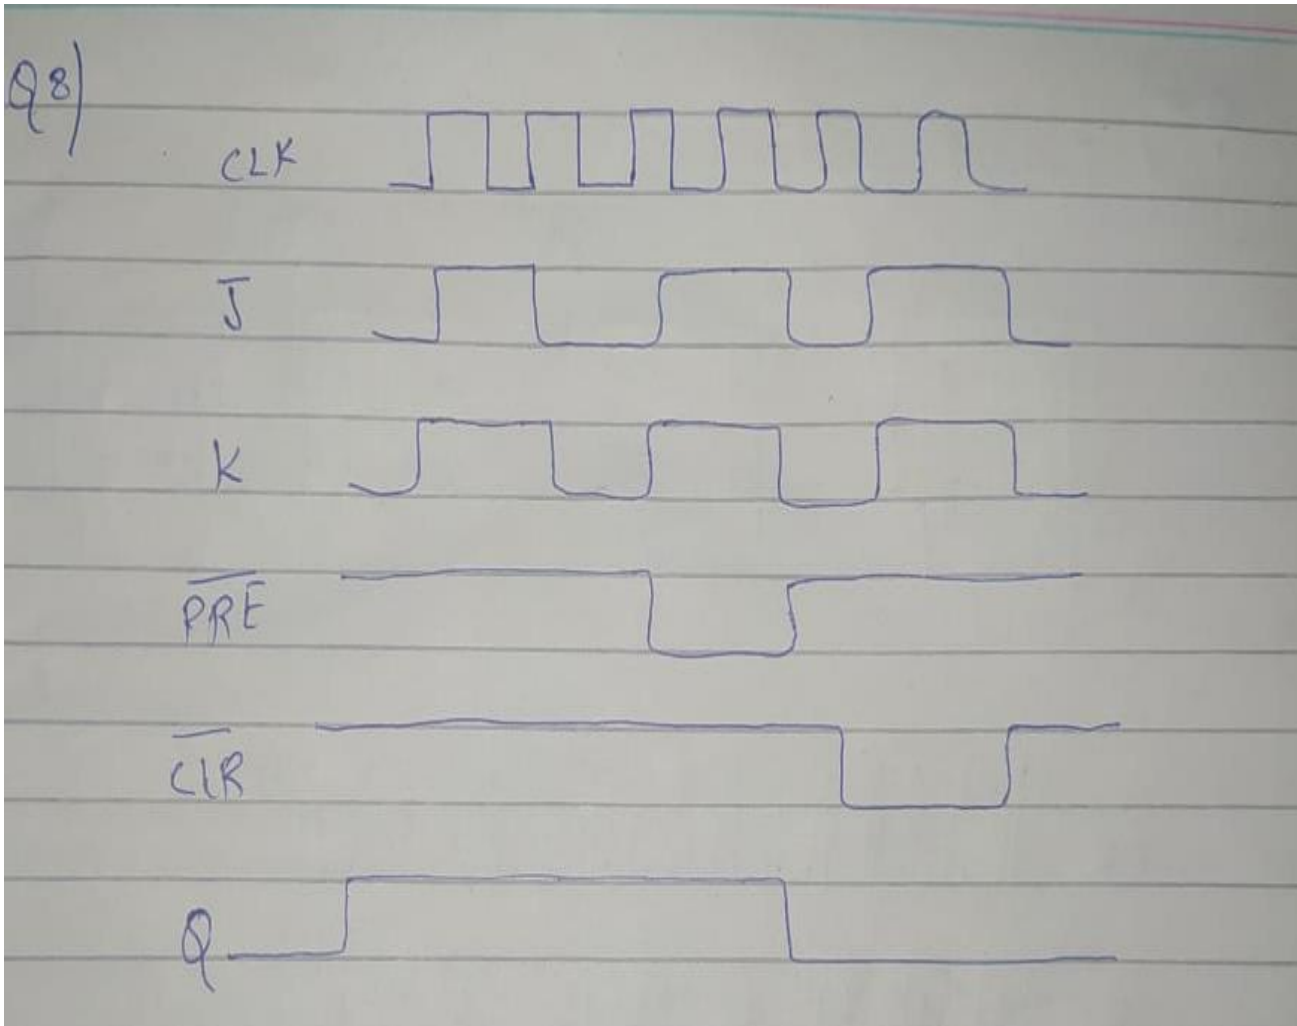 Q8)
CLK
J
K
P̅R̅E̅
C̅L̅R̅
Q